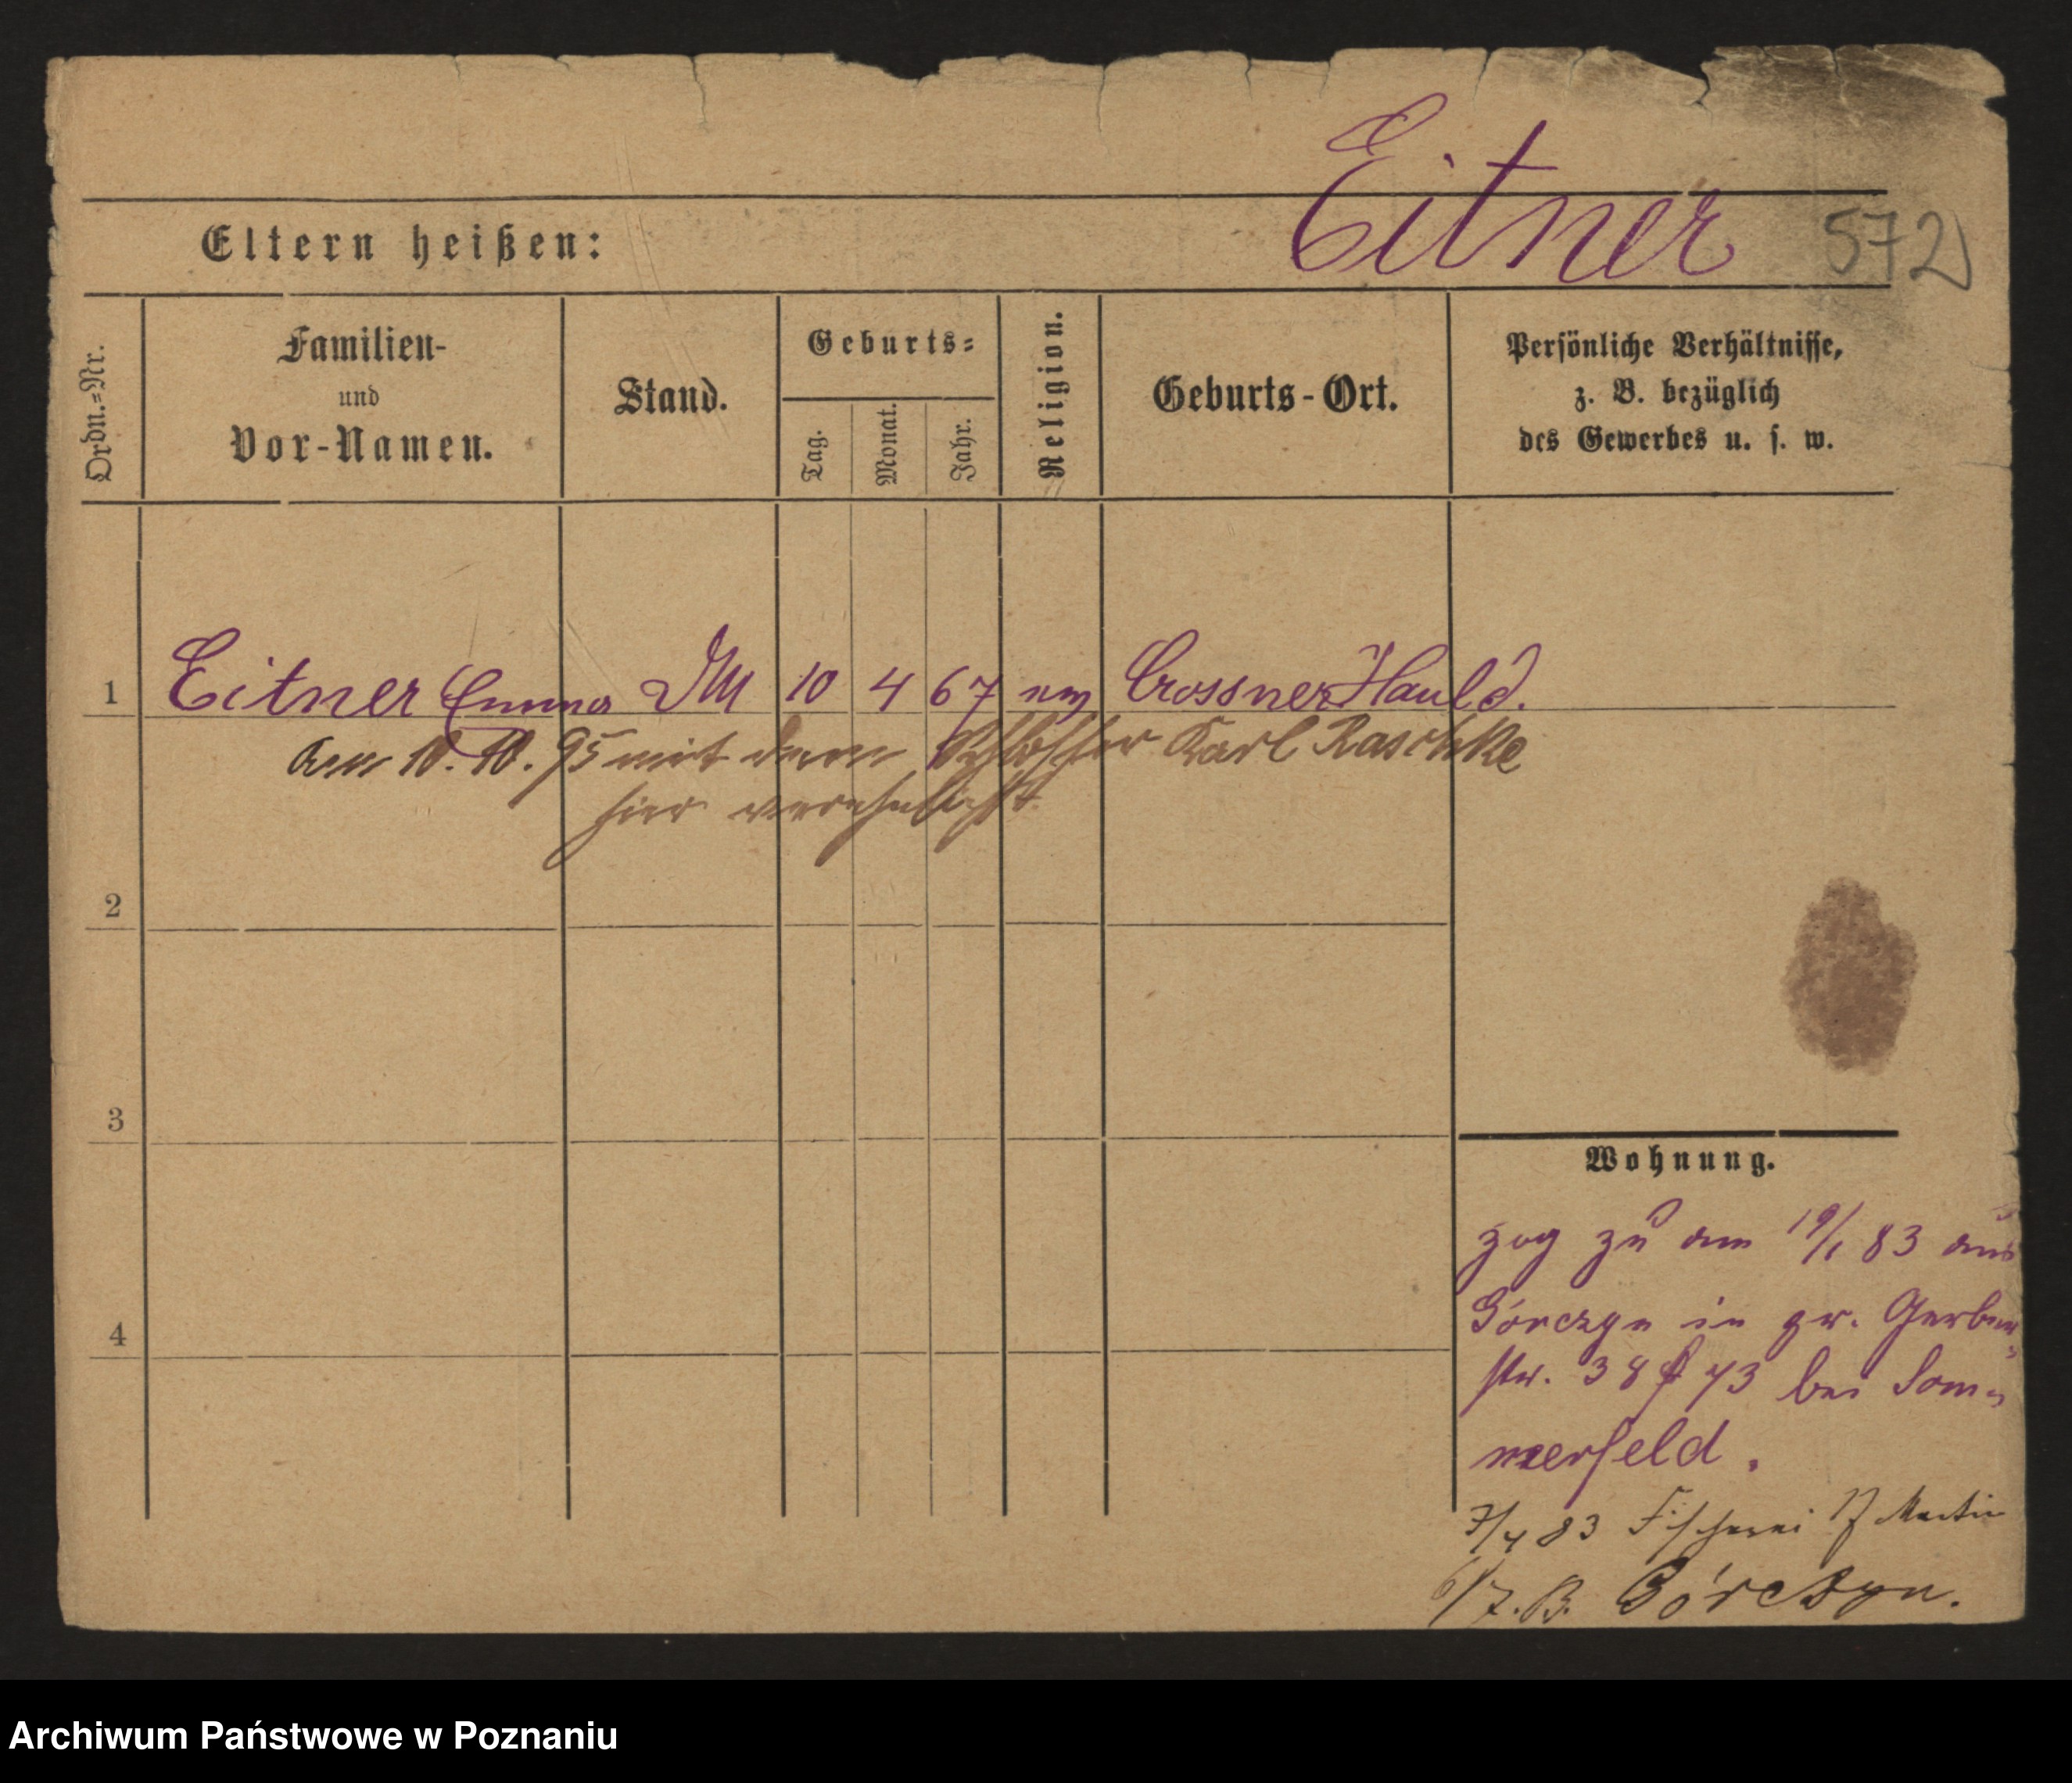 Eitner
572
Eltern heißen:
Ordn.=Nr.
Familien-
und
Vor-Namen.
Stand.
Geburts=
Tag.
Monat.
Jahr.
Religion.
Geburts-Ort.
Persönliche Verhältnisse,
z. B. bezüglich
des Gewerbes u. s. w.
1 Eitner Emma 10 4 67 Crossner Hauld.
10. 10. 95 mit dem Schlosser Karl Raschke
hier verehelicht.
2
3
4
Wohnung.
zog zu am 19/1 83 aus
Górczyn in gr. Gerber
str. 38 bei Som-
merfeld.
7/4 83 Fischerei 17 Martin
6/7. B. Górczyn.
Archiwum Państwowe w Poznaniu